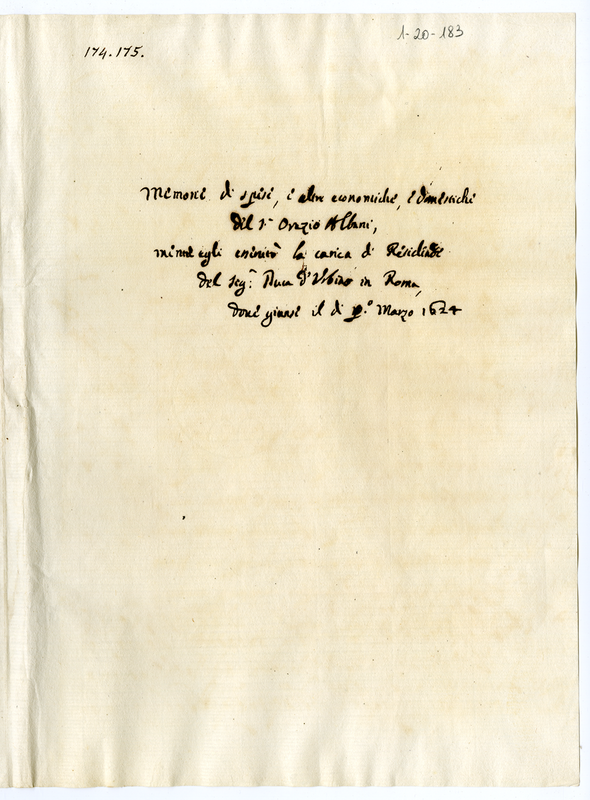 1-20-183
174.175.
Memorie di spese, e altre economiche, e domestiche
del Sr Orazio Albani,
mentre egli esercitò la carica di Residente
del Sigr. Duca d'Urbino in Roma,
dove giunse il di p.o Marzo 1624